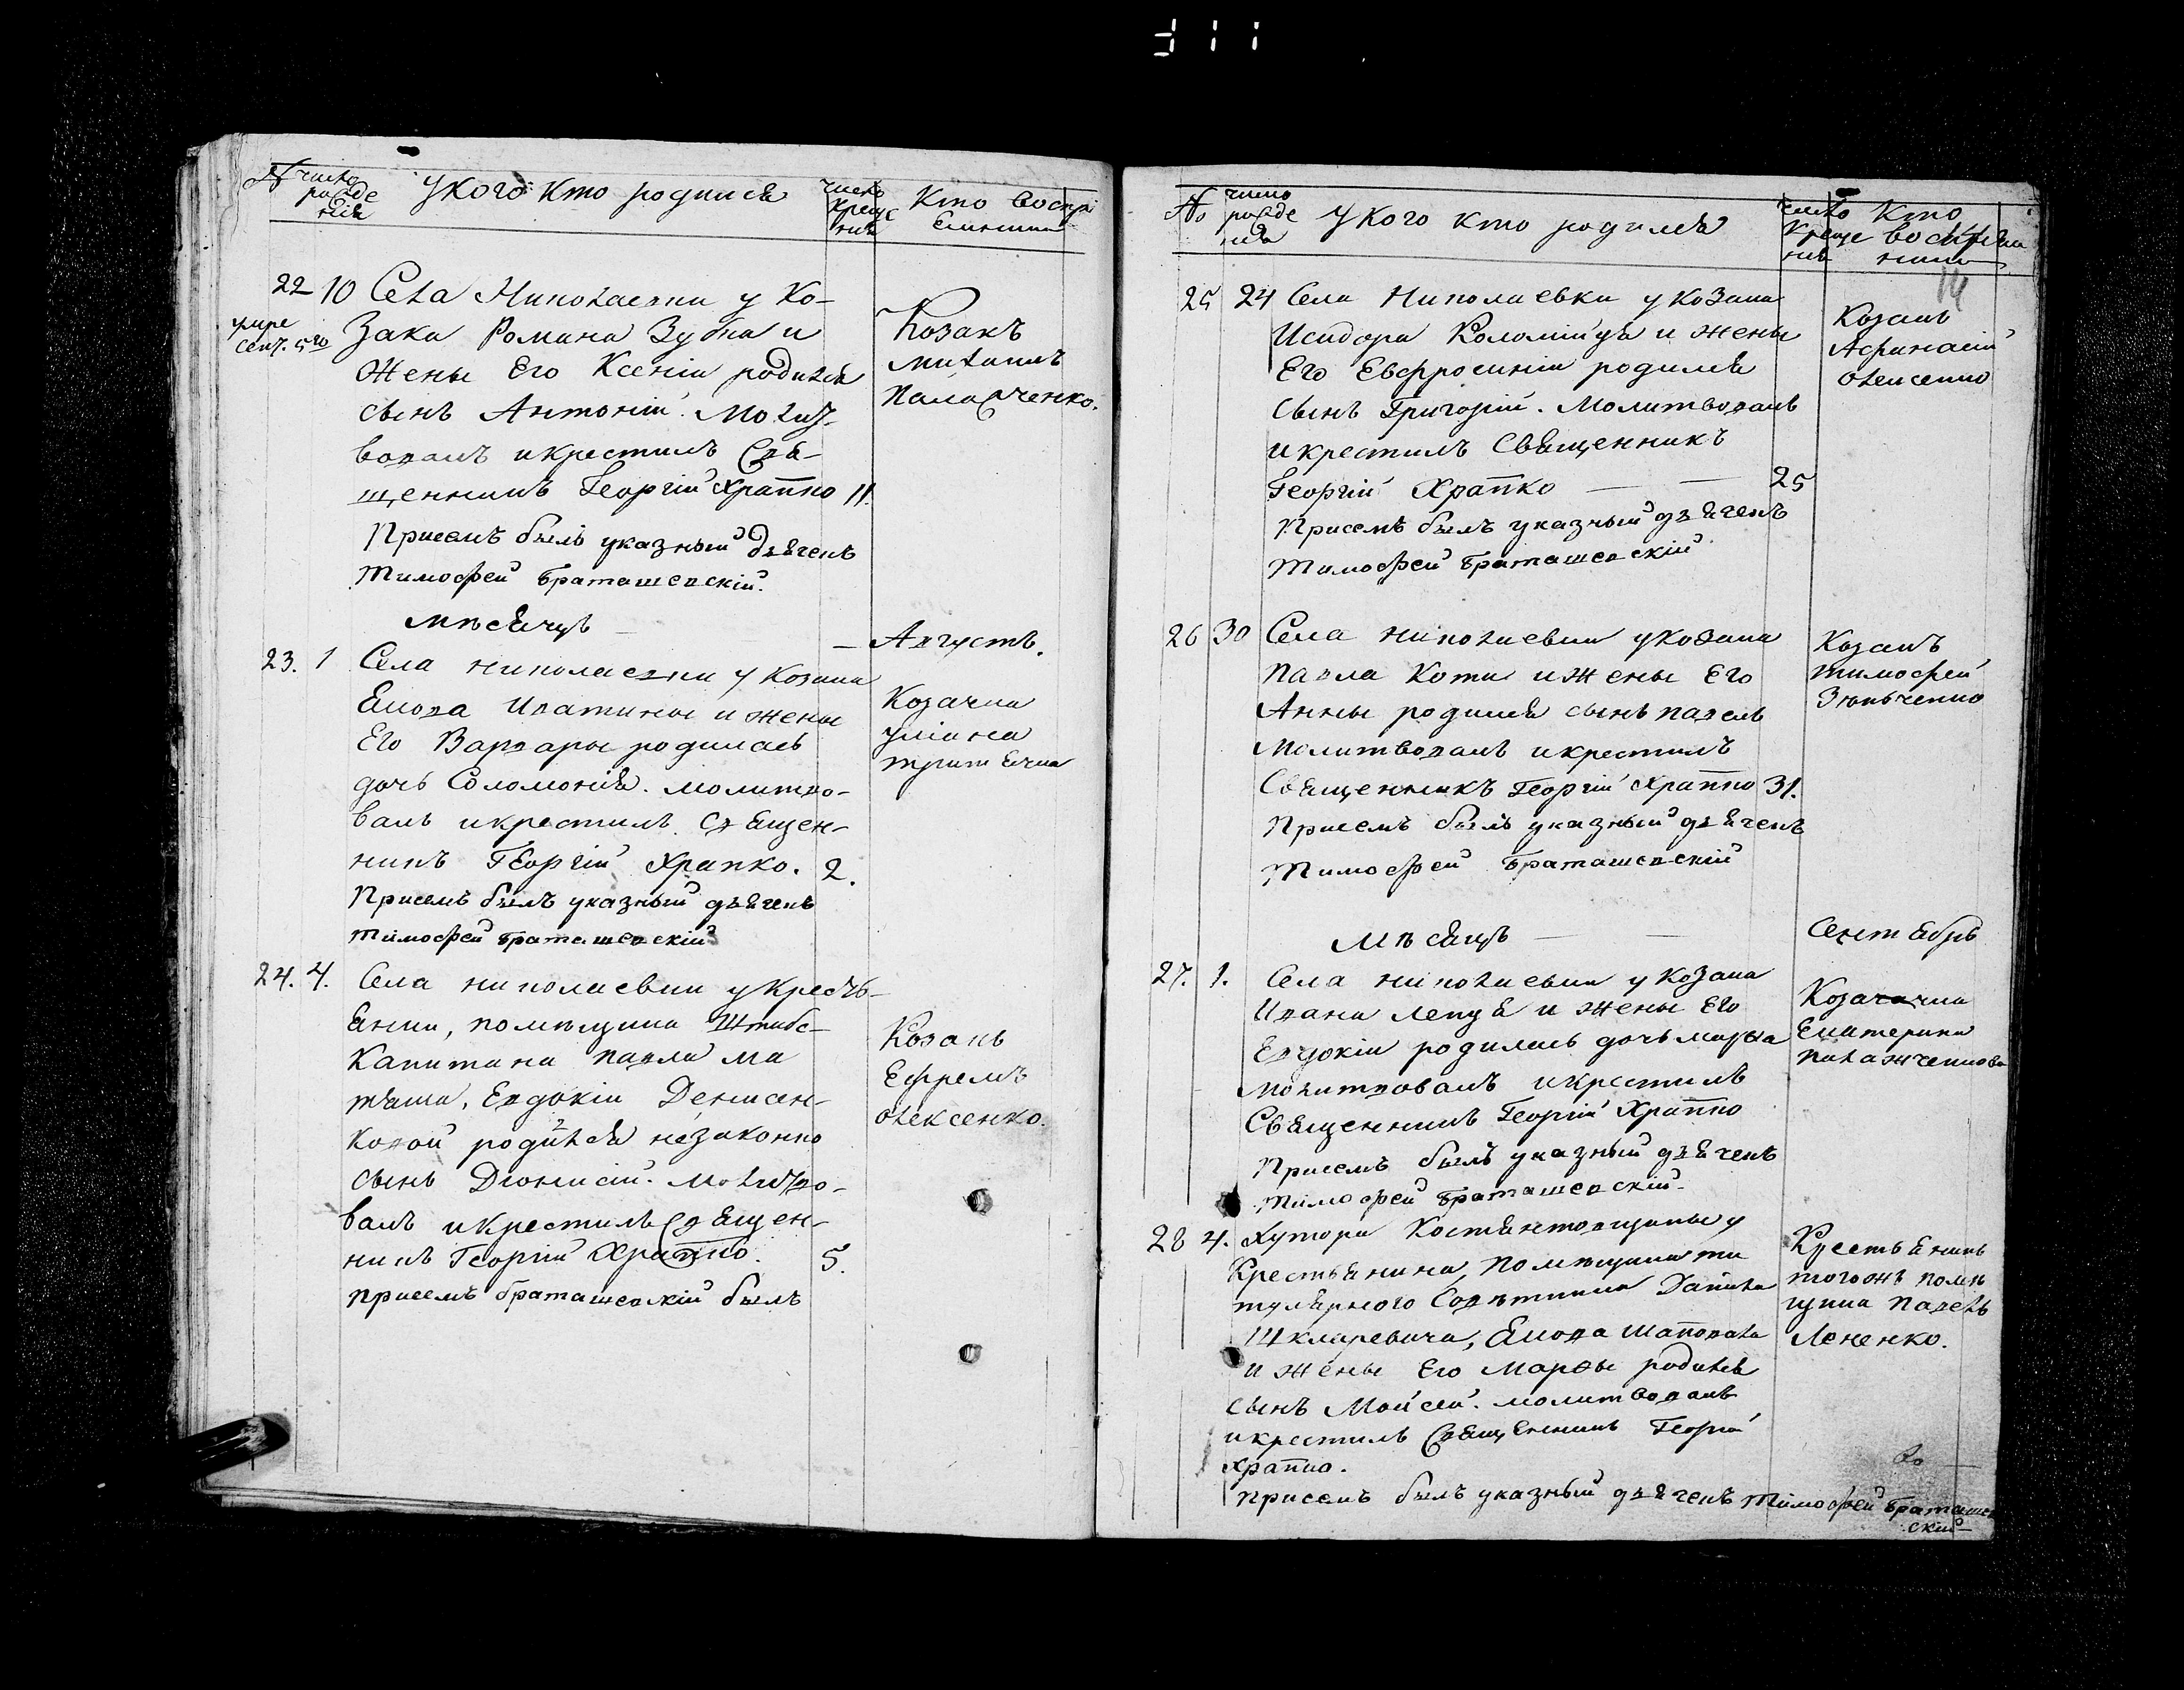 № число рожде нія
у кого кто родился
число креще нія
кто воспріемники
22 10 Села Николаевки у Ко-
умре сент. 5го
зака Романа Зубка и
жены Его Ксеніи родился
сынъ Антоній. Молит-
вовалъ и крестилъ Свя-
щенникъ Георгій Храпко 11.
Козакъ
Михаилъ
Пала
ченко.
Приемъ былъ указный дьячекъ
Тимофей Браташевскій.
Мѣсяцъ — Августъ.
23. 1 Села Николаевки у козака
Якова Ипатины и жены
Его Варвары родилась
дочь Соломонія. молитво-
валъ и крестилъ Священ-
никъ Георгій Храпко. 2.
Козачка
Уліана
Приемъ былъ указный дьячекъ
Тимофей Браташевскій
24. 4. Села Николаевки у крестъ-
янки, помѣщика Штабс-
Капитана Павла Ма
Евдокіи Денисен-
ковой родился незаконно
сынъ Діонисій. Молитво-
валъ и крестилъ Священ-
никъ Георгій Храпко. 5.
Козакъ
Ефремъ
Олексенко.
Приемъ Браташевскій былъ
№ число рожде нія
у кого кто родился
число креще нія
кто воспріем ники
14
25 24 Села Николаевки у козака
Исидора Коломійця и жены
Его Евфросиніи родился
сынъ Григорій. Молитвовалъ
и крестилъ Священникъ
Георгій Храпко — — 25
Козакъ
Афанасій
Олексенко
Приемъ былъ указный дьячекъ
Тимофей Браташевскій
26 30 Села Николаевки у козака
Павла Коти и жены Его
Анны родился сынъ Павелъ
Молитвовалъ и крестилъ
Священникъ Георгій Храпко 31.
Козакъ
Тимофей
Зѣньченко
Приемъ былъ указный дьячекъ
Тимофей Браташевскій
Мѣсяцъ — — Сентябрь
27. 1. Села Николаевки у козака
Ивана Лепця и жены Его
Евдокіи родилась дочь Марѳа
Молитвовалъ и крестилъ
Священникъ Георгій Храпко
Козачка
Екатерина
Палажченкова
Приемъ былъ указный дьячекъ
Тимофей Браташевскій.
28 4. Хутора у
Крестьянина, помѣщика ти
тулярного Совѣтника Данила
Шкляревича, Якова Шаповала
и жены Его Марѳы родился
сынъ Мойсей. молитвовалъ
и крестилъ Священникъ Георгій
Храпко.
Крестьянинъ
тогожъ помѣ
щика Павелъ
Лененко.
Приемъ былъ указный дьячекъ Тимофей Браташев
скій